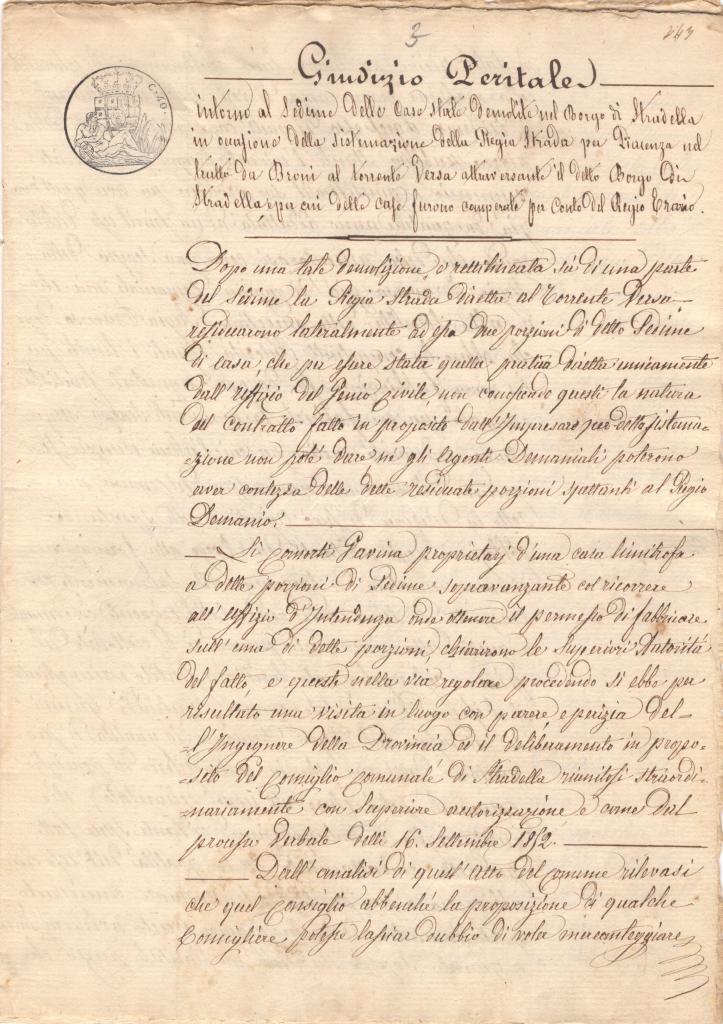 3
243
C. 40.
Giudizio Peritale
intorno al Sedime delle Case state demolite nel Borgo di Stradella
in occasione della sistemazione della Regia Strada per Piacenza nel
tratto da Broni al torrente Versa attraversante il detto Borgo di
Stradella e per cui delle case furono comperate per conto del Regio Erario.
Dopo una tale demolizione, e rettilineata su di una parte
del Sedime la Regia Strada diretta al Torrente Versa
residuarono lateralmente ad essa due porzioni di detto Sedime
di casa, che per essere stata quella pratica diretta unicamente
dall'uffizio del Genio Civile, non conoscendo questi la natura
del contratto fatto in proposito dall'Impresaro per detta sistema-
-zione non poté dare né gli Agenti Demaniali poterono
aver contezza delle dette residuate porzioni spettanti al Regio
Demanio.
Li Consorti Gavina proprietarj d'una casa limitrofa
a delle porzioni di Sedime sopravanzante col ricorrere
all'Uffizio d'Intendenza onde ottenere il permesso di fabbricare
sull'una di dette porzioni, chiarirono le Superiori Autorità
del fatto, e queste nella via regolare procedendo si ebbe per
risultato una visita in luogo con parere e perizia del-
-l'Ingegnere della Provincia ed il deliberamento in propo-
-sito del Consiglio Comunale di Stradella riunitosi straordi-
-nariamente con Superiore autorizzazione e come dal
processo Verbale delli 16. Settembre 1852.
Dall'analisi di quest'Atto del Comune rilevasi
che quel Consiglio abbenché la proposizione di qualche
Consigliere potesse lasciar dubbio di voler mercanteggiare